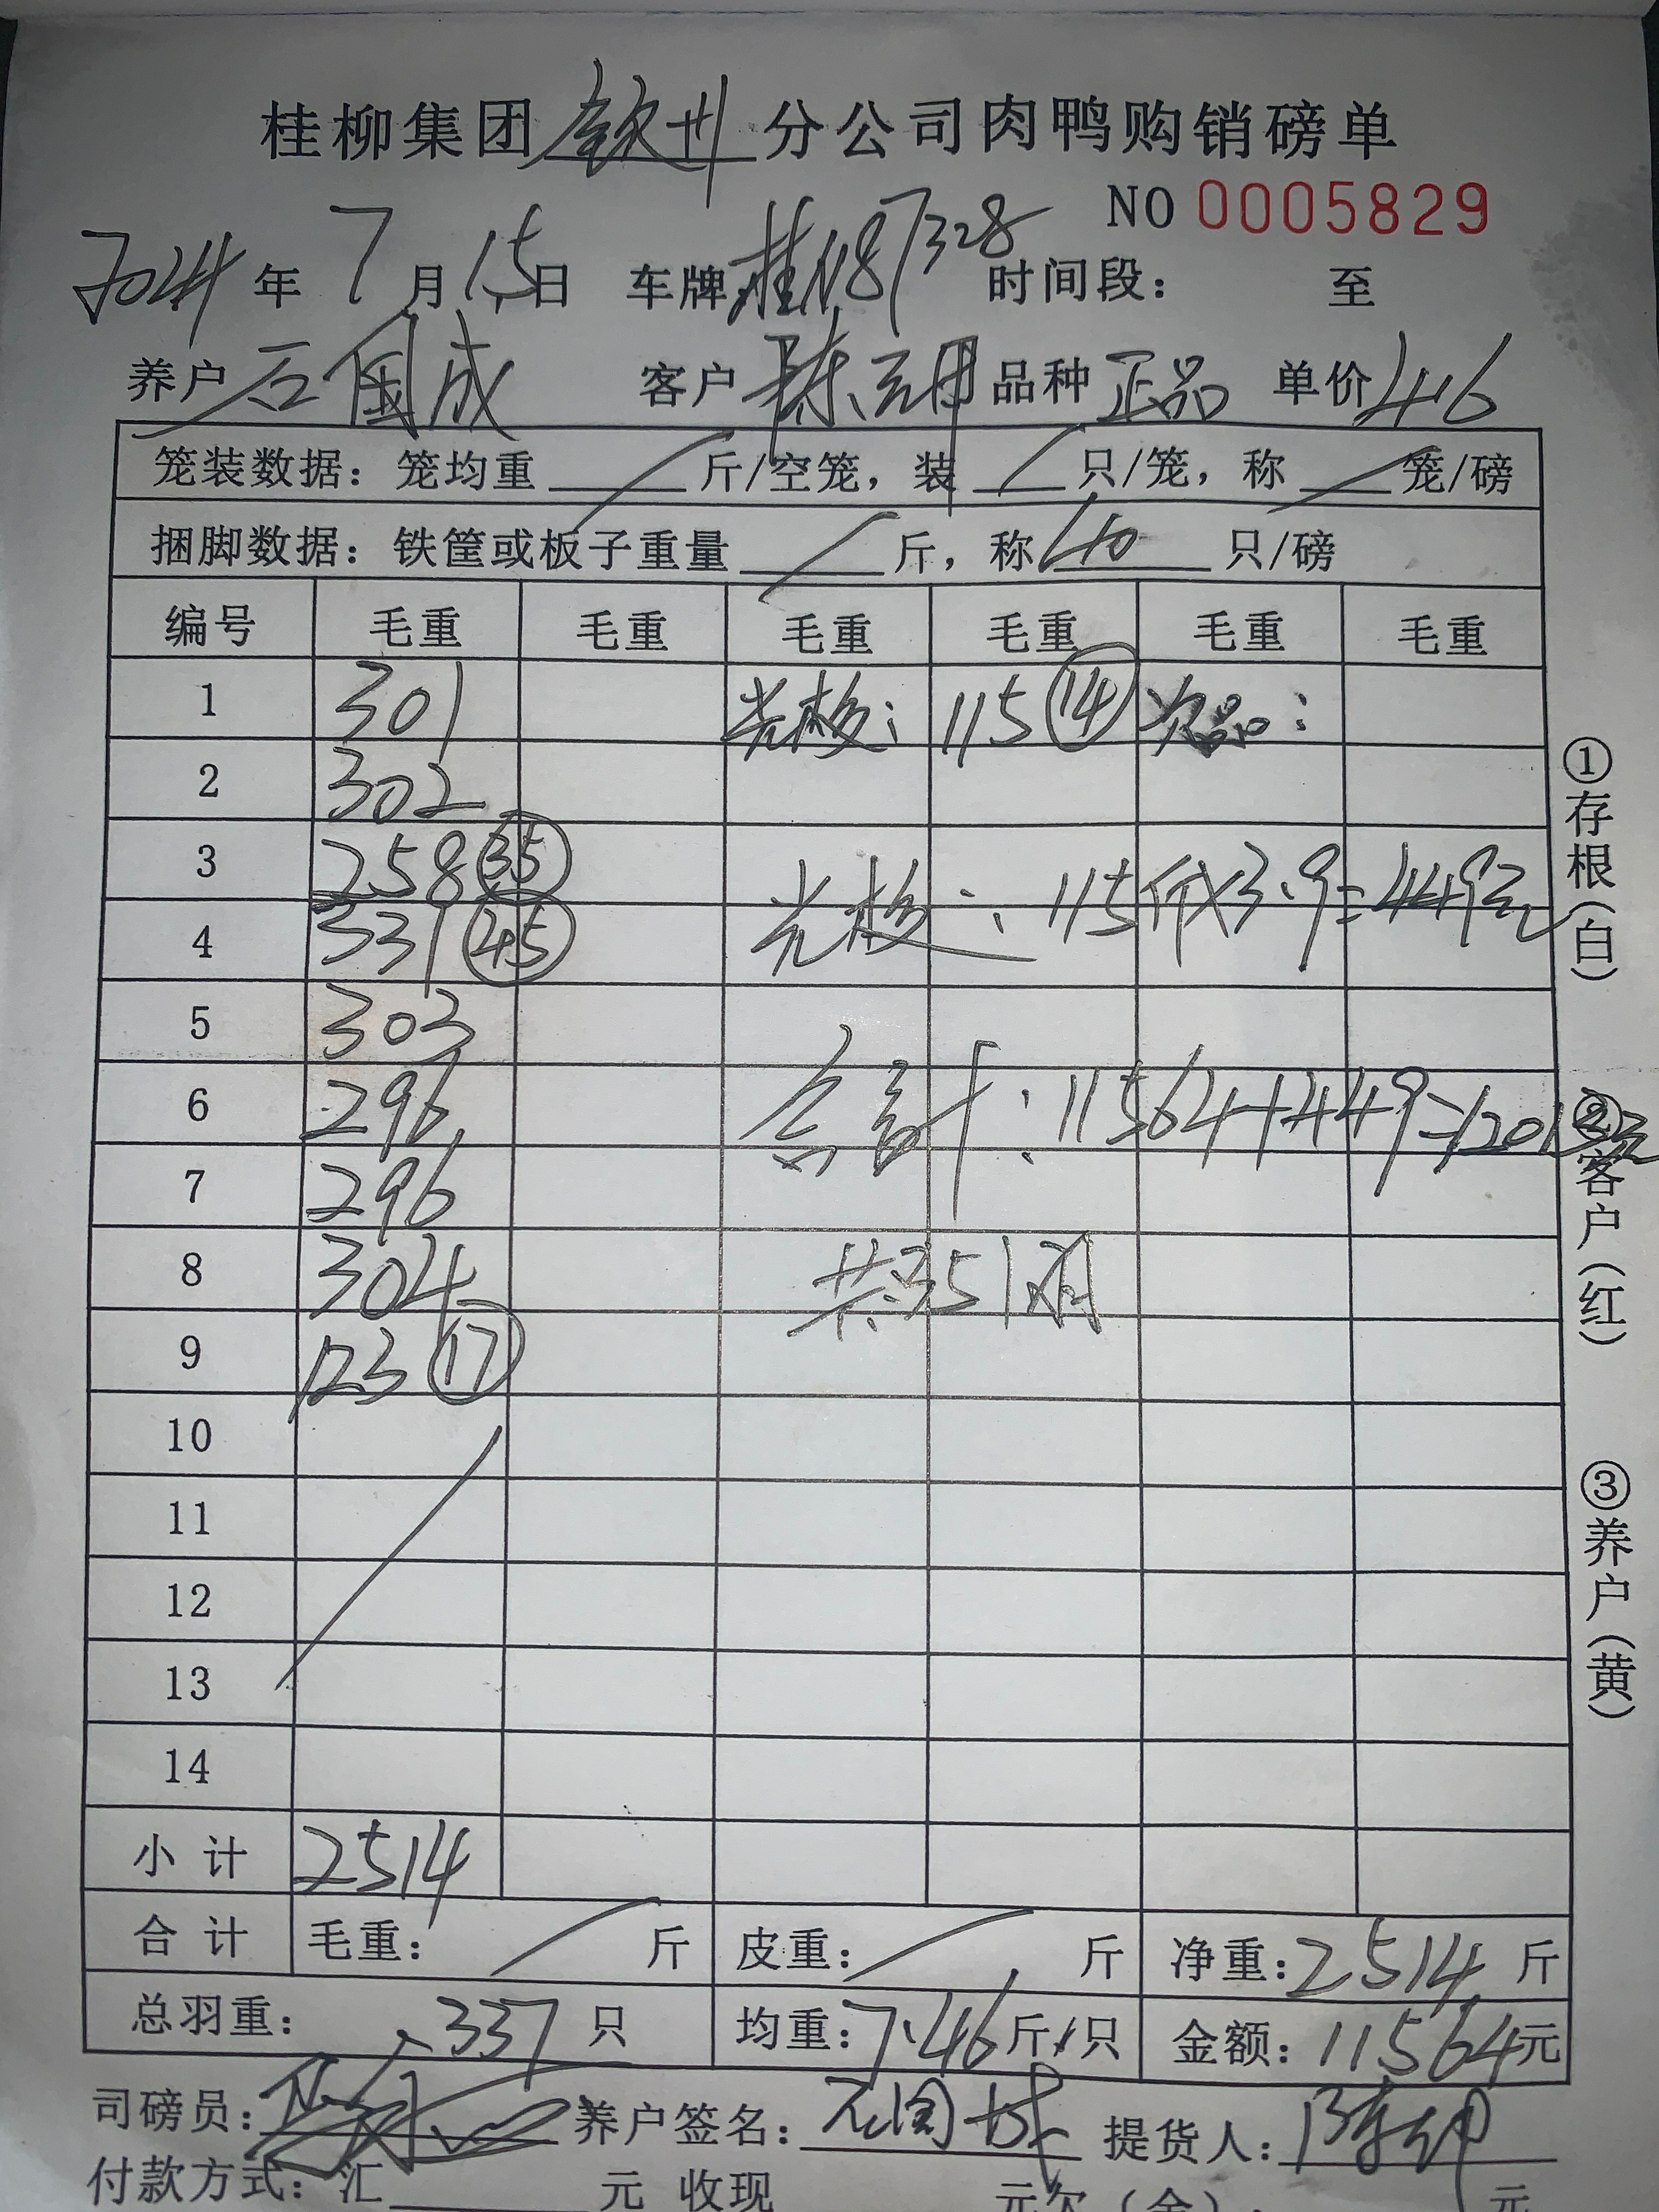 桂柳集团钦州分公司肉鸭购销磅单
NO 0005829
2024年7月15日 车牌桂N87328 时间段： 至
养户 石国成 客户 陈明 品种 正品 单价 4.6
笼装数据：笼均重 斤/空笼，装 只/笼，称 笼/磅
捆脚数据：铁筐或板子重量 斤，称 40 只/磅
编号 毛重 毛重 毛重 毛重 毛重 毛重
1 301 光棍： 115 (14) 次品：
2 302
3 258 (35)
4 331 (45) 光棍：115斤×3.9=449元
5 303
6 296 合计：11564+449=12013元
7 296
8 304 共351羽
9 123 (17)
10
11
12
13
14
小计 2514
合计 毛重： 斤 皮重： 斤 净重：2514 斤
总羽重： 337 只 均重：7.46斤/只 金额：11564元
司磅员： 养户签名：石国成 提货人：
付款方式：汇 元 收现 元欠（余）： 元
①存根（白）
②客户（红）
③养户（黄）